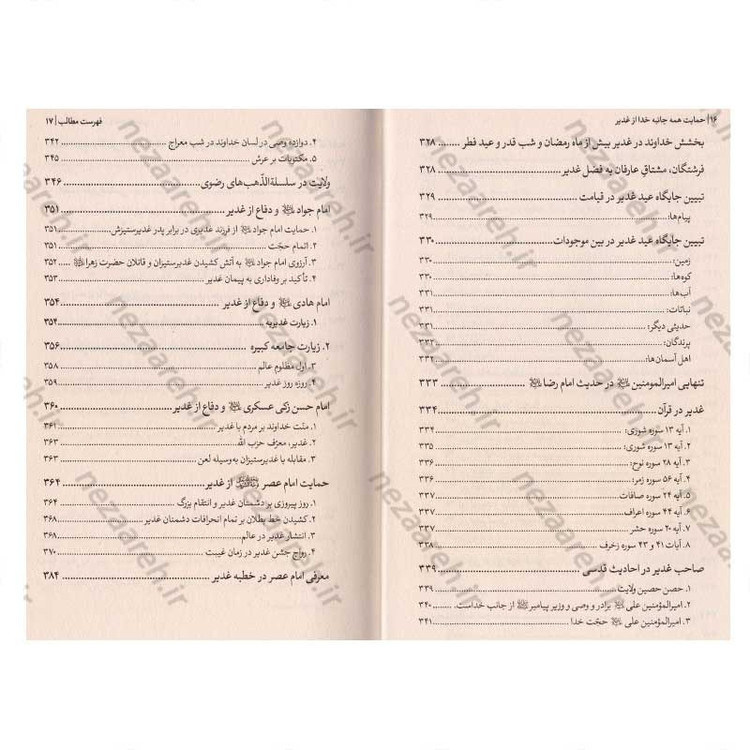 ۱۶| حمایت همه جانبه خدا از غدیر
بخشش خداوند در غدیر بیش از ماه رمضان و شب قدر و عید فطر ........ ۳۲۸
فرشتگان، مشتاق عارفان به فضل غدیر ........ ۳۲۸
تبیین جایگاه عید غدیر در قیامت ........ ۳۲۹
پیام‌ها: ........ ۳۲۹
تبیین جایگاه عید غدیر در بین موجودات ........ ۳۳۰
زمین: ........ ۳۳۰
کوه‌ها: ........ ۳۳۰
آب‌ها: ........ ۳۳۱
نباتات: ........ ۳۳۱
حدیثی دیگر: ........ ۳۳۱
پرندگان: ........ ۳۳۲
اهل آسمان‌ها: ........ ۳۳۲
تنهایی امیرالمومنین در حدیث امام رضا ........ ۳۳۳
غدیر در قرآن ........ ۳۳۴
۱. آیه ۱۳ سوره شوری: ........ ۳۳۴
۲. آیه ۱۳ سوره شوری: ........ ۳۳۵
۳. آیه ۲۸ سوره نوح: ........ ۳۳۶
۴. آیه ۵۶ سوره زمر: ........ ۳۳۶
۵. آیه ۲۴ سوره صافات ........ ۳۳۷
۶. آیه ۴۴ سوره اعراف ........ ۳۳۷
۷. آیه ۲۰ سوره حشر ........ ۳۳۷
۸. آیات ۴۱ و ۴۳ سوره زخرف ........ ۳۳۸
صاحب غدیر در احادیث قدسی ........ ۳۳۹
۱. حصن حصین ولایت ........ ۳۳۹
۲. امیرالمؤمنین علی برادر و وصی و وزیر پیامبر از جانب خداست. ........ ۳۴۰
۳. امیرالمؤمنین علی حجّت خدا ........ ۳۴۱
فهرست مطالب |۱۷
۴. دوازده وصی در لسان خداوند در شب معراج ........ ۳۴۲
۵. مکتوبات بر عرش ........ ۳۴۵
ولایت در سلسلة‌الذّهب‌های رضوی ........ ۳۴۶
امام جواد و دفاع از غدیر ........ ۳۵۱
۱. حمایت امام جواد از فرزند غدیری در برابر پدر غدیرستیزش ........ ۳۵۱
۲. اتمام حجّت ........ ۳۵۱
۳. آرزوی امام جواد به آتش کشیدن غدیرستیزان و قاتلان حضرت زهرا ........ ۳۵۲
۴. تأکید بر وفاداری به پیمان غدیر ........ ۳۵۳
امام هادی و دفاع از غدیر ........ ۳۵۴
۱. زیارت غدیریه ........ ۳۵۴
۲. زیارت جامعه کبیره ........ ۳۵۶
۳. اول مظلوم عالم ........ ۳۵۸
۴. روزه روز غدیر ........ ۳۵۹
امام حسن زکی عسکری و دفاع از غدیر ........ ۳۶۰
۱. منّت خداوند بر مردم با غدیر ........ ۳۶۱
۲. غدیر، معرّف حزب الله ........ ۳۶۳
۳. مقابله با غدیرستیزان به‌وسیله لعن ........ ۳۶۳
حمایت امام عصر از غدیر ........ ۳۶۴
۱. روز پیروزی بر دشمنان غدیر و انتقام بزرگ ........ ۳۶۴
۲. کشیدن خط بطلان بر تمام انحرافات دشمنان غدیر ........ ۳۶۸
۳. انتشار غدیر در عالم ........ ۳۶۸
۴. رواج جشن غدیر در زمان غیبت ........ ۳۷۰
معرفی امام عصر در خطبه غدیر ........ ۳۸۴
nezaareh.ir